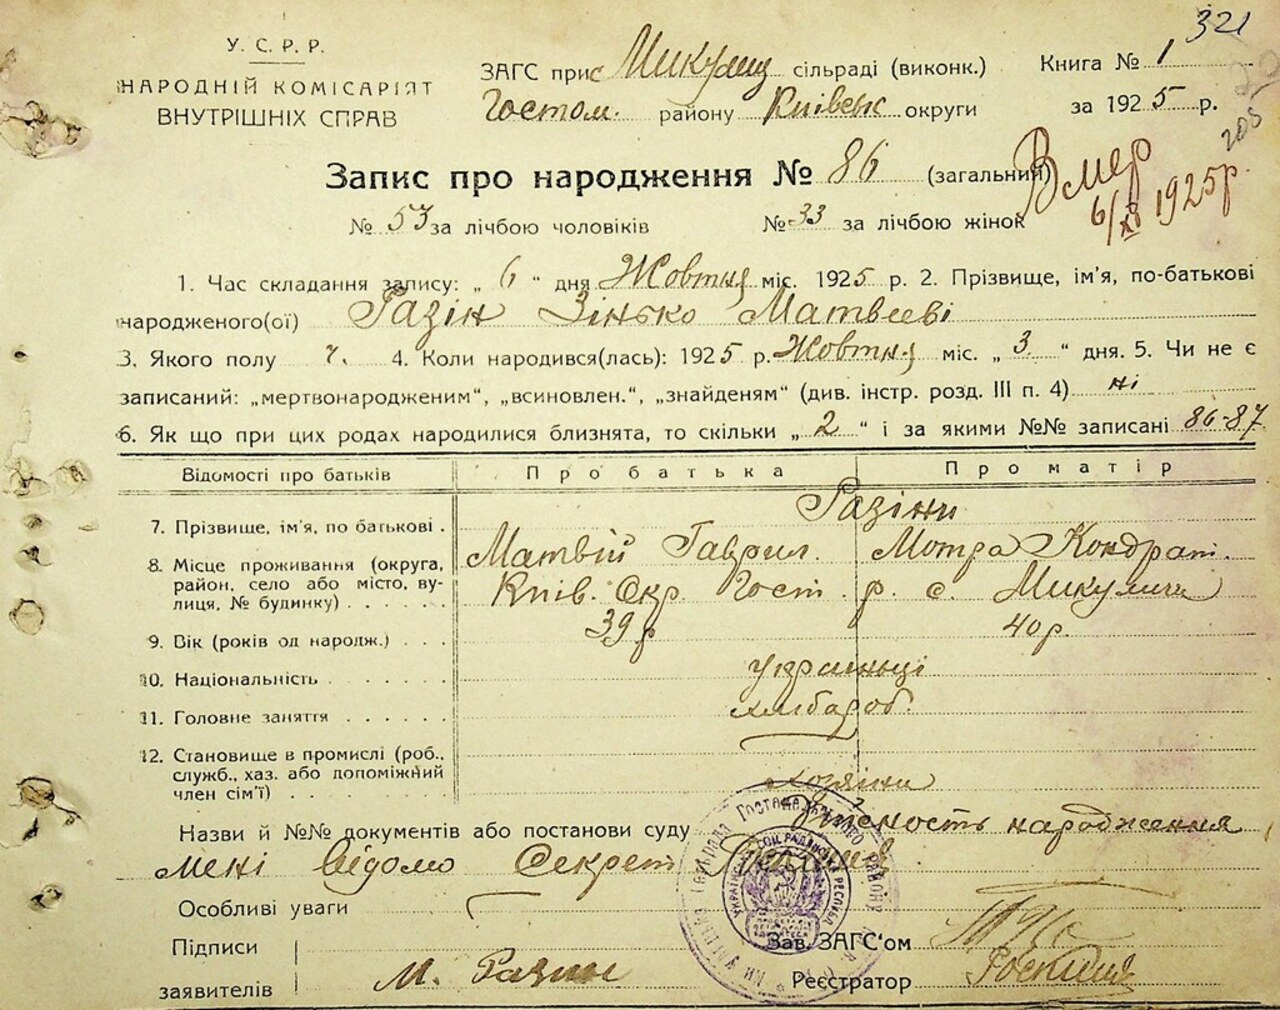 321
У. С. Р. Р.
НАРОДНІЙ КОМІСАРІЯТ
ВНУТРІШНІХ СПРАВ
ЗАГС при Микулиц сільраді (виконк.)
Гостом. району Київськ округи
Книга № 1
за 1925 р.
205
Запис про народження № 86 (загальний)
Вмер
6/XII 1925р
№ 53 за лічбою чоловіків № 33 за лічбою жінок
1. Час складання запису: „ 6 “ дня Жовтня міс. 1925 р. 2. Прізвище, ім'я, по-батькові
народженого(ої) Разін Зінько Матвеєві
3. Якого полу ч. 4. Коли народився(лась): 1925 р. Жовтня міс. „ 3 “ дня. 5. Чи не є
записаний: „мертвонародженим“, „всиновлен.“, „знайденям“ (див. інстр. розд. III п. 4) ні
6. Як що при цих родах народилися близнята, то скільки „ 2 “ і за якими №№ записані 86-87
Відомості про батьків Про батька Про матір
Разіни
7. Прізвище, ім'я, по батькові . Матвій Гаврил. Мотра Кондрат.
8. Місце проживання (округа, район, село або місто, вулиця, № будинку) Київ. Окр. Гост. р. с. Микуличи
9. Вік (років од народж.) . . . 39 р 40 р.
10. Національність українці
11. Головне заняття хлібороб.
12. Становище в промислі (роб., служб., хаз. або допоміжний член сім'ї) хозяїни
Назви й №№ документів або постанови суду дійсность народження
мені відомо Секрет
Особливі уваги
Підписи
заявителів М. Разин
Зав. ЗАГС'ом
Реєстратор